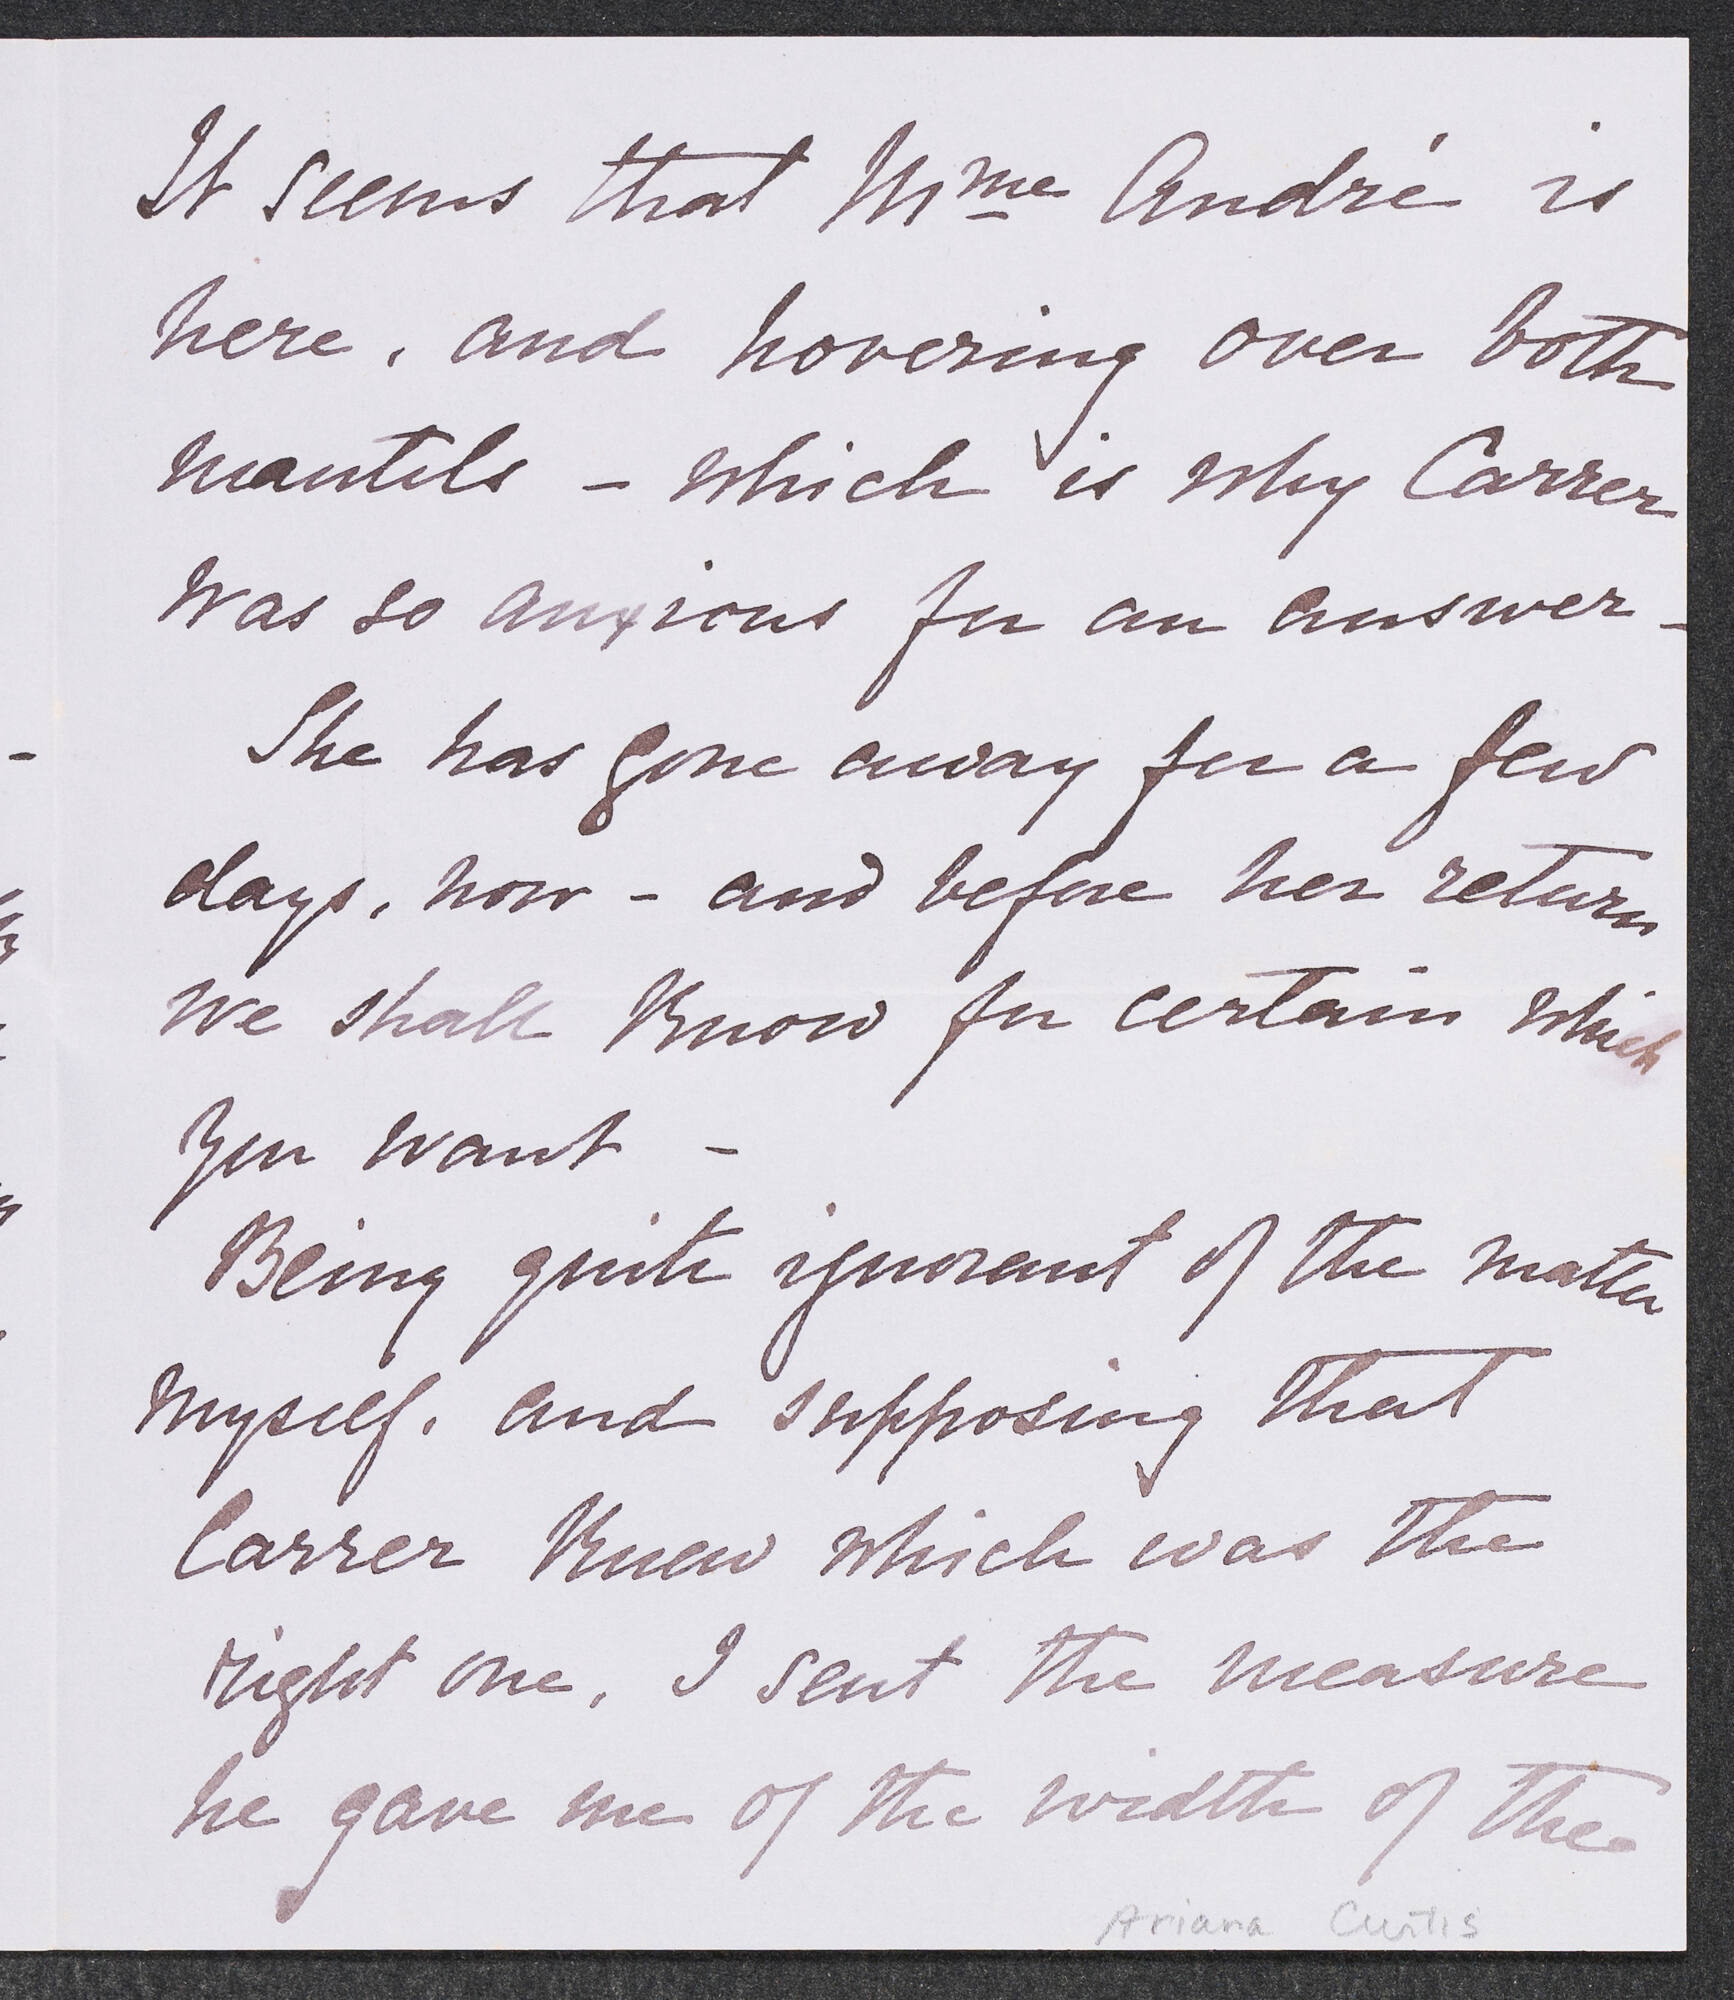 It seems that Mme André is
here, and hovering over both
mantels – which is why Carrer
was so anxious for an answer –
She has gone away for a few
days, now – and before her return
we shall know for certain which
you want –
Being quite ignorant of the matter
myself, and supposing that
Carrer knew which was the
right one, I sent the measure
he gave me of the width of the
Ariana Curtis